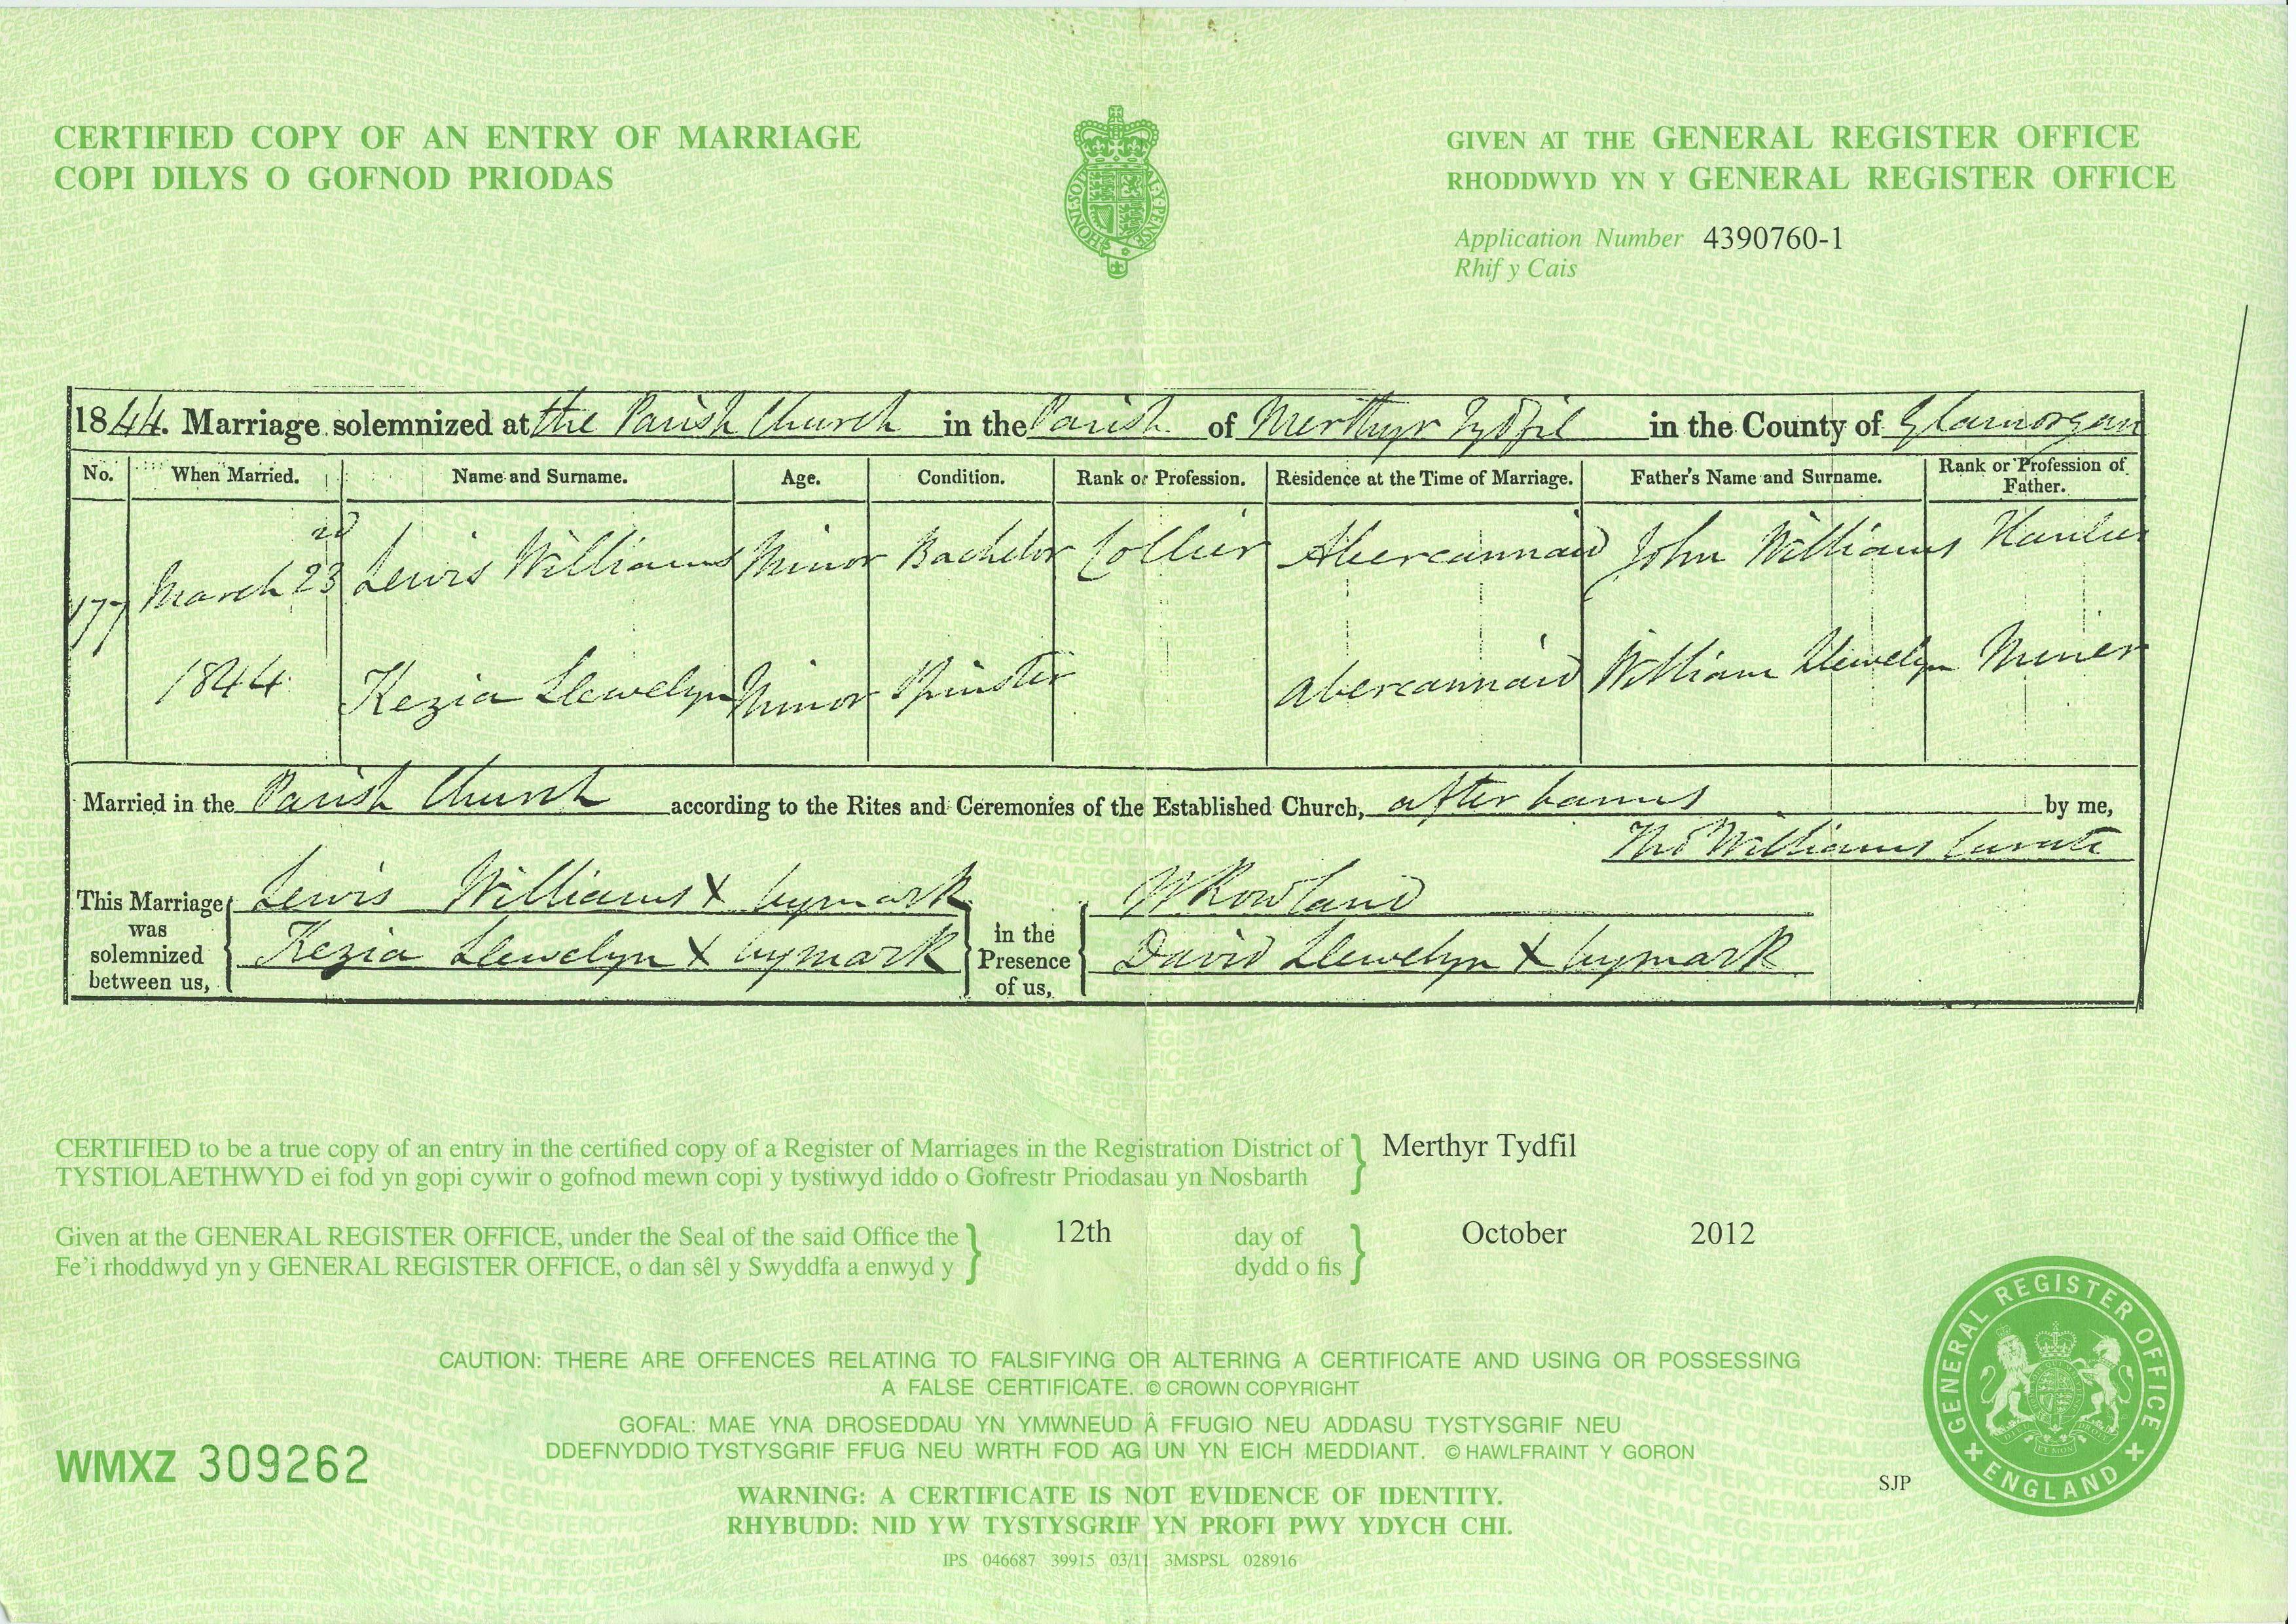 CERTIFIED COPY OF AN ENTRY OF MARRIAGE
COPI DILYS O GOFNOD PRIODAS
GIVEN AT THE GENERAL REGISTER OFFICE
RHODDWYD YN Y GENERAL REGISTER OFFICE
Application Number 4390760-1
Rhif y Cais
1844. Marriage solemnized at the Parish Church in the Parish of Merthyr Tydfil in the County of Glamorgan
No. When Married. Name and Surname. Age. Condition. Rank or Profession. Residence at the Time of Marriage. Father's Name and Surname. Rank or Profession of Father.
177 March 23rd Lewis Williams Minor Bachelor Collier Abercannaid John Williams
1844 Kezia Llewelyn Minor Spinster Abercannaid William Llewelyn Miner
Married in the Parish Church according to the Rites and Ceremonies of the Established Church, after banns by me,
Thos Williams Curate
This Marriage was solemnized between us,
Lewis Williams X by mark
Kezia Llewelyn X by mark
in the Presence of us,
W Rowland
David Llewelyn X by mark
CERTIFIED to be a true copy of an entry in the certified copy of a Register of Marriages in the Registration District of } Merthyr Tydfil
TYSTIOLAETHWYD ei fod yn gopi cywir o gofnod mewn copi y tystiwyd iddo o Gofrestr Priodasau yn Nosbarth
Given at the GENERAL REGISTER OFFICE, under the Seal of the said Office the } 12th day of } October 2012
Fe'i rhoddwyd yn y GENERAL REGISTER OFFICE, o dan sêl y Swyddfa a enwyd y dydd o fis
CAUTION: THERE ARE OFFENCES RELATING TO FALSIFYING OR ALTERING A CERTIFICATE AND USING OR POSSESSING
A FALSE CERTIFICATE. © CROWN COPYRIGHT
GOFAL: MAE YNA DROSEDDAU YN YMWNEUD Â FFUGIO NEU ADDASU TYSTYSGRIF NEU
DDEFNYDDIO TYSTYSGRIF FFUG NEU WRTH FOD AG UN YN EICH MEDDIANT. © HAWLFRAINT Y GORON
WMXZ 309262
WARNING: A CERTIFICATE IS NOT EVIDENCE OF IDENTITY.
RHYBUDD: NID YW TYSTYSGRIF YN PROFI PWY YDYCH CHI.
IPS 046687 39915 03/11 3MSPSL 028916
SJP
GENERAL REGISTER OFFICE
ENGLAND